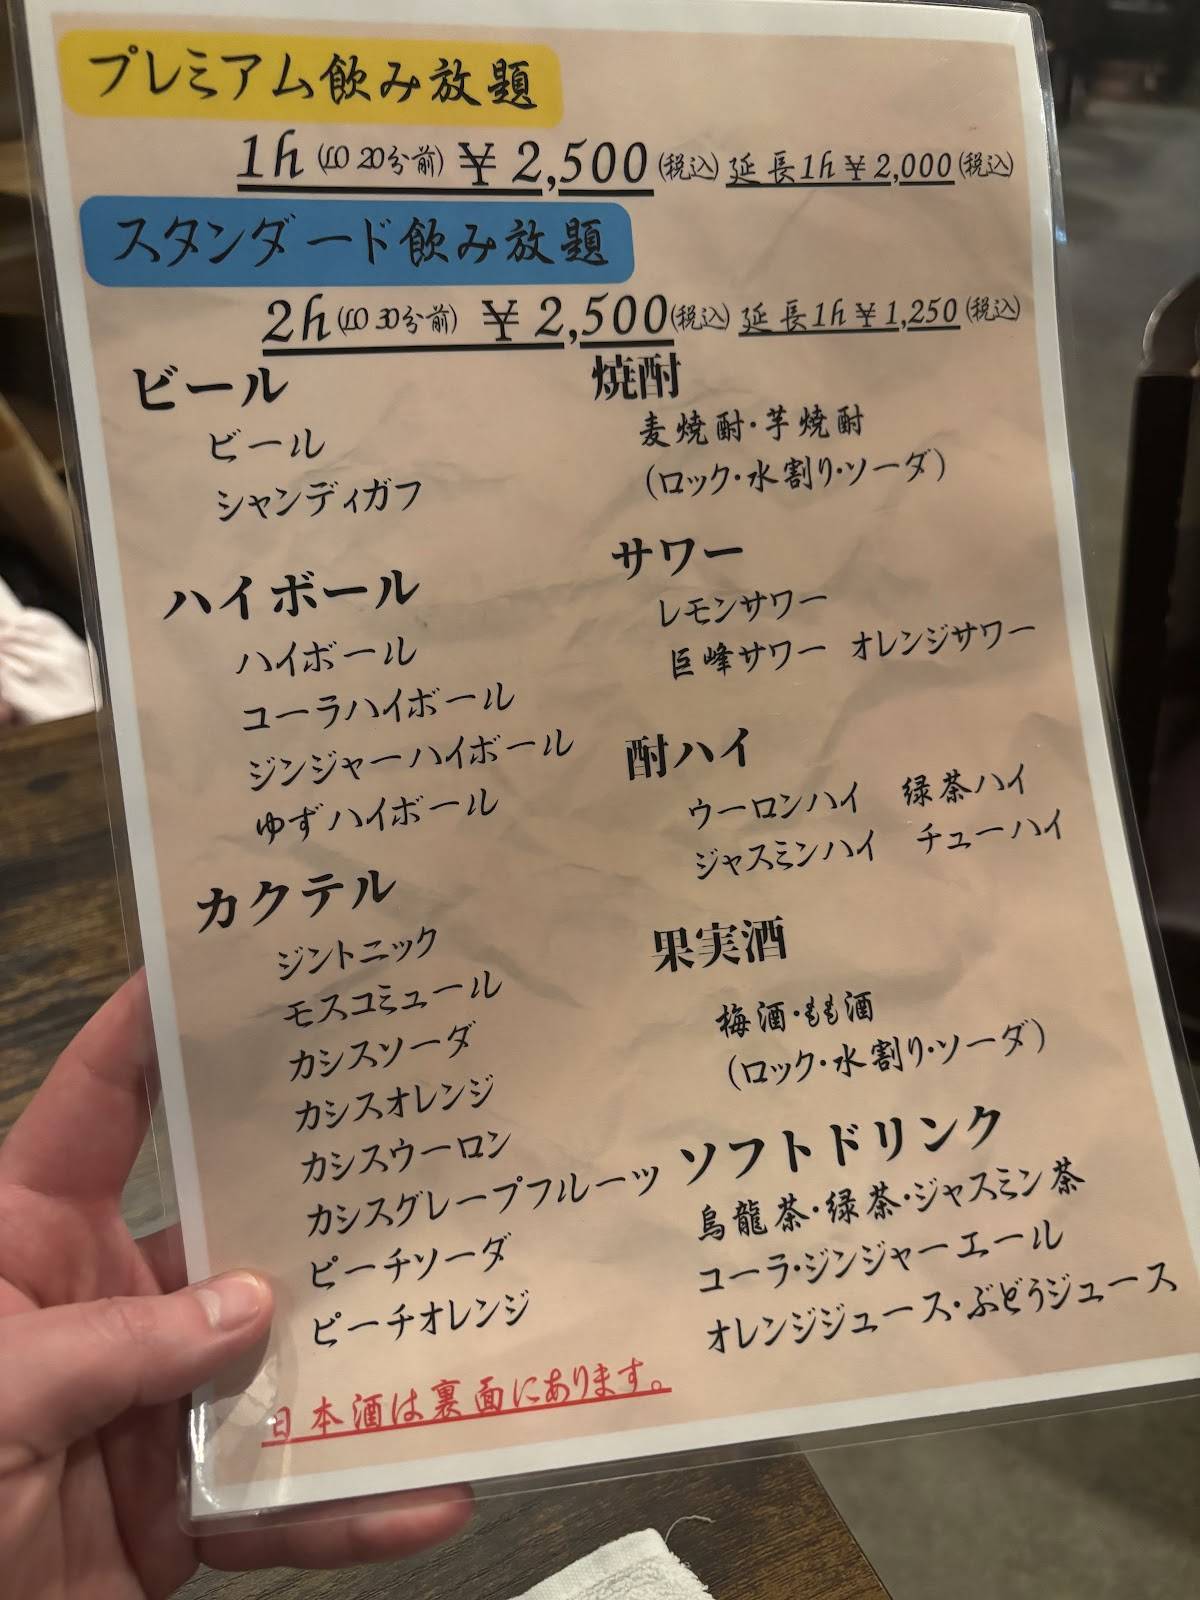 プレミアム飲み放題
1h (LO 20分前) ¥2,500 (税込) 延長1h ¥2,000 (税込)
スタンダード飲み放題
2h (LO 30分前) ¥2,500 (税込) 延長1h ¥1,250 (税込)
ビール
ビール
シャンディガフ
ハイボール
ハイボール
コーラハイボール
ジンジャーハイボール
ゆずハイボール
カクテル
ジントニック
モスコミュール
カシスソーダ
カシスオレンジ
カシスウーロン
カシスグレープフルーツ
ピーチソーダ
ピーチオレンジ
焼酎
麦焼酎・芋焼酎
(ロック・水割り・ソーダ)
サワー
レモンサワー
巨峰サワー オレンジサワー
酎ハイ
ウーロンハイ 緑茶ハイ
ジャスミンハイ チューハイ
果実酒
梅酒・もも酒
(ロック・水割り・ソーダ)
ソフトドリンク
烏龍茶・緑茶・ジャスミン茶
コーラ・ジンジャーエール
オレンジジュース・ぶどうジュース
日本酒は裏面にあります。